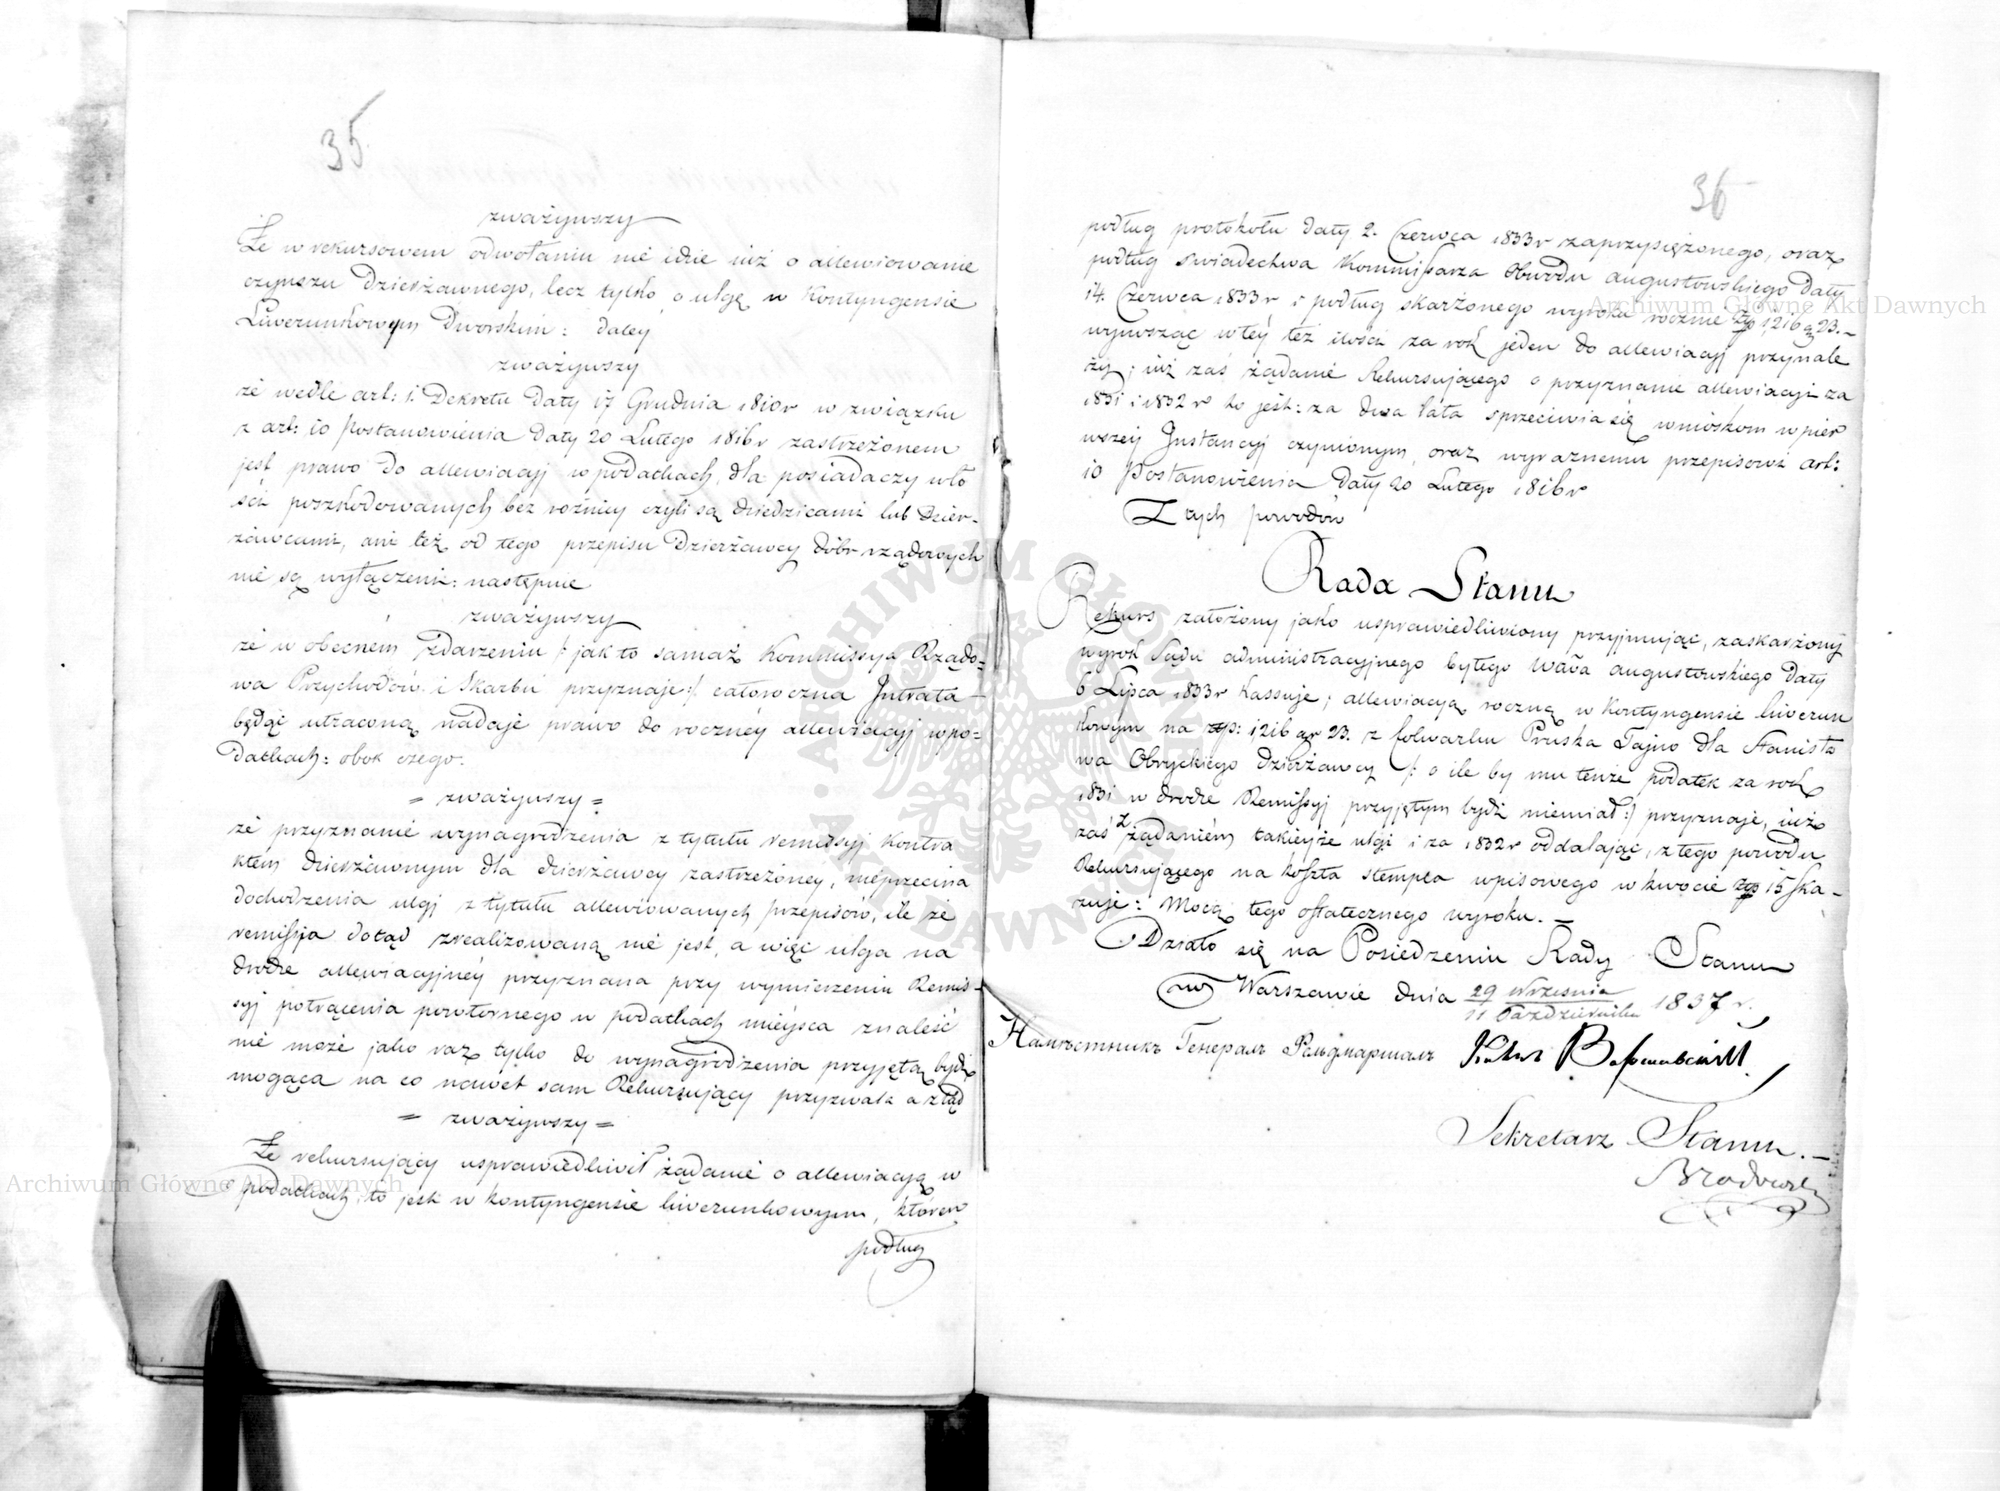 35
zważywszy
Że w rekursowem odwołaniu nie idzie już o allewiowanie
czynszu Dzierżawnego, lecz tylko o ulgę w Kontyngensie
Liwerunkowym Dworskim: daley
zważywszy
że wedle art: 1. Dekretu daty 17 Grudnia 1810 r w związku
z art: 10 Postanowienia daty 20 Lutego 1816 r zastrzeżonem
jest prawo do allewiacyj w podatkach, dla posiadaczy wło
ści poszkodowanych bez rożnicy czyli są dziedzicami lub Dzier-
żawcami, ani też od tego przepisu Dzierżawcy dóbr rządowych
nie są wyłączeni: następnie
zważywszy
że w obecném zdarzeniu /: jak to samaż Kommissya Rządo=
wa Przychodów i Skarbu przyznaje :/ całoroczna Intrata
będąc utraconą nadaje prawo do roczney allewiacyj w po=
datkach: obok czego.
= zważywszy =
że przyznanie wynagrodzenia z tytułu remissyj Kontra
ktem dzierżawnym dla dzierżawcy zastrzeżoney, nieprzecina
dochodzenia ulgi z tytułu allewiowanych przepisów, ile że
remissja dotąd zrealizowaną nie jest, a więc ulga na
drodze allewiacyjnéy przyznana przy wymierzeniu Remis-
syj potrącenia powtornego w podatkach miejsca znaleść
nie może jako raz tylko do wynagrodzenia przyjętą bydź
mogąca na co nawet sam Rekursujący przyzwala a ztąd
= zważywszy =
Że rekursujący usprawiedliwił żądanie o allewiacyą w
podatkach, to jest w kontyngensie liwerunkowym, któren
podług
36
podług protokołu daty 2. Czerwca 1833 r zaprzysiężonego, oraz
podług świadectwa Kommissarza Obwodu augustowskiego daty
14. Czerwca 1833 r i podług skarżonego wyroku rocznie zp 1216 g 23.-
wynosząc w téy też ilości za rok jeden do allewiacyj przynale
ży; już zaś żądanie Rekursującego o przyznanie allewiacyi za
1831 i 1832 r to jest: za dwa lata sprzeciwia się wnioskom w pier
wszéy Instancyj czynionym, oraz wyraznemu przepisowi art:
10 Postanowienia daty 20 Lutego 1816 r
Z tych powodów
Rada Stanu
Rekurs założony jako usprawiedliwiony przyjmując, zaskarżony
wyrok Sądu administracyjnego byłego Wdzwa augustowskiego daty
6 Lipca 1833 r kassuje; allewiacyą roczną w Kontyngensie liwerun
kowym na zp: 1216 gr 23. z folwarku Pruska Tajno dla Stanisła
wa Obryckiego dzierżawcy /: o ile by mu tenże podatek za rok
1831 w drodze Remissyj przyjętym bydź niemiał :/ przyznaje, już
zaś z żądaniem takieyże ulgi i za 1832 r oddalając, z tego powodu
Rekursującego na koszta stempla wpisowego w kwocie zp 15 ska-
zuje: Mocą tego ostatecznego wyroku. -
Działo się na Posiedzeniu Rady Stanu
w Warszawie dnia 29 Września / 11 Października 1837 r.
Намѣстникъ Генералъ Фельдмаршалъ Князь Варшавскій
Sekretarz Stanu. -
Brodowski
Archiwum Główne Akt Dawnych
Archiwum Główne Akt Dawnych
ARCHIWUM GŁÓWNE AKT DAWNYCH